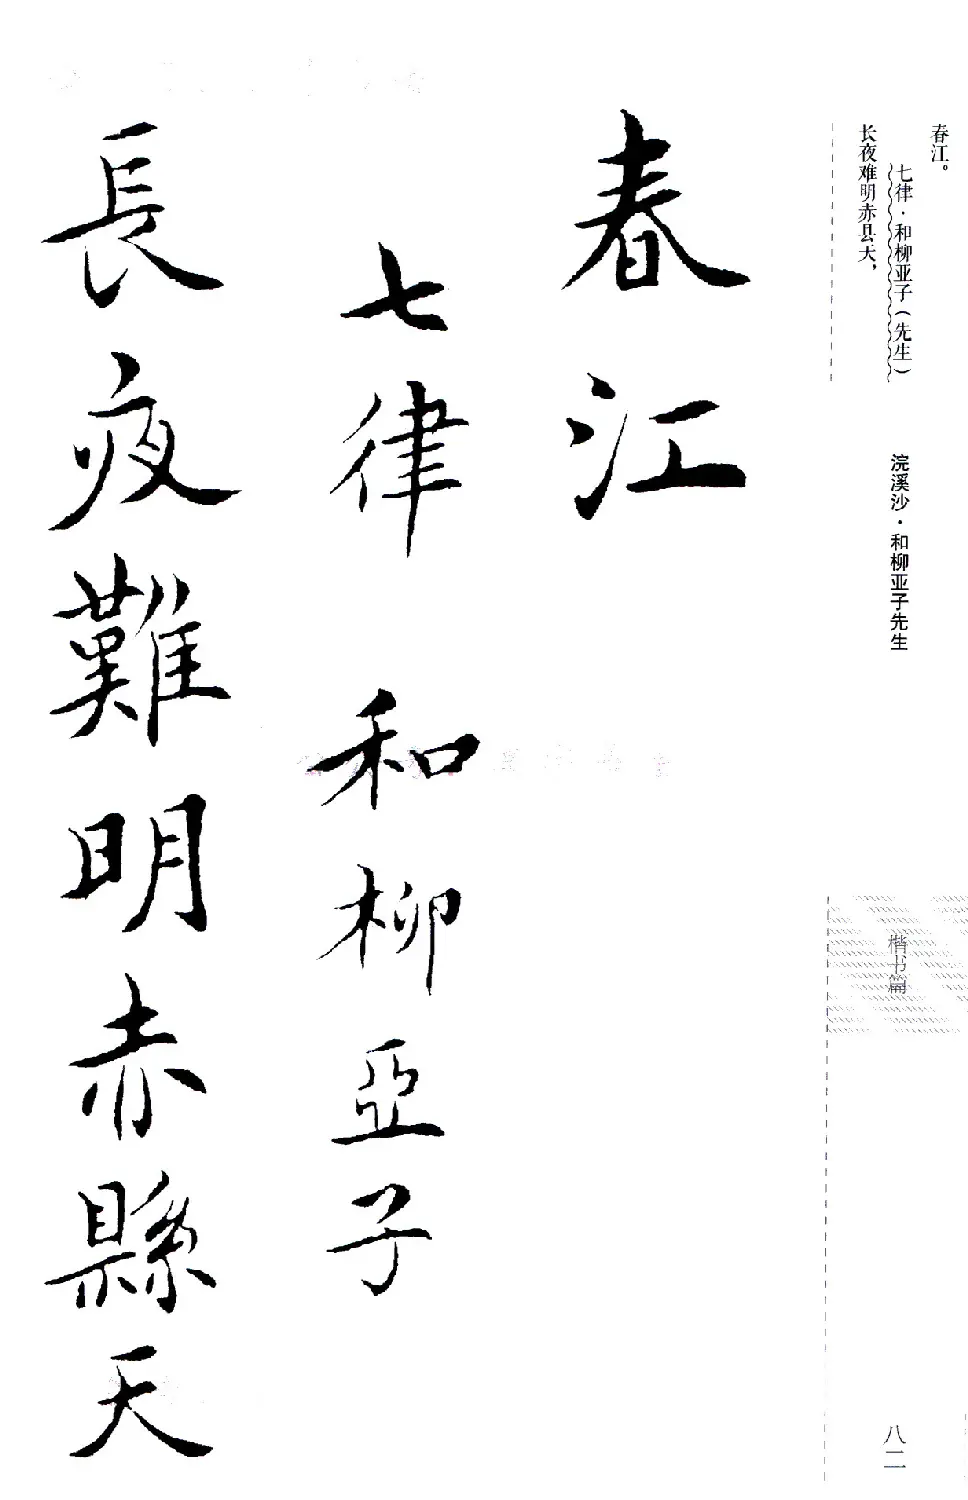 春江。
七律·和柳亚子（先生）
长夜难明赤县天，
浣溪沙·和柳亚子先生
楷书篇
八二
春江
七律 和柳亞子
長夜難明赤縣天